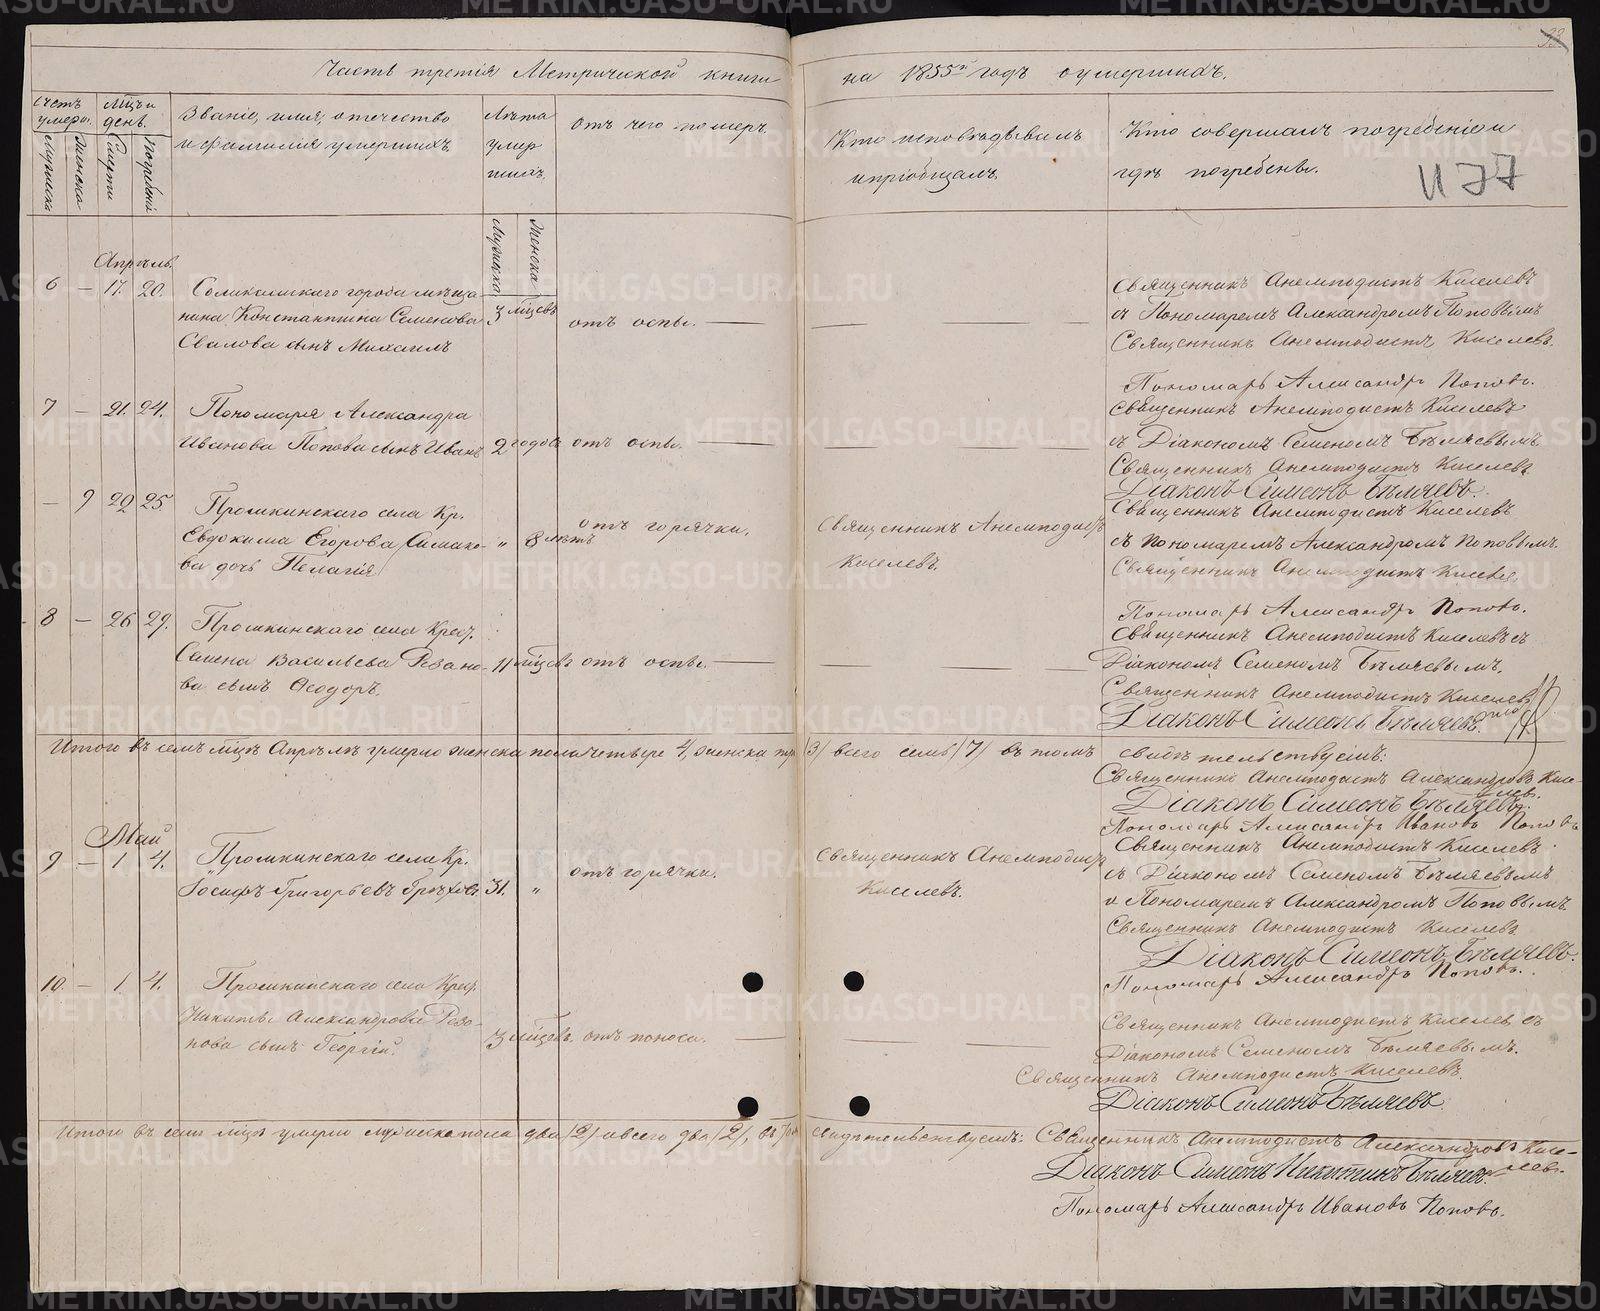 Часть третія Метрической книги на 1855й годъ о умершихъ.
счетъ умерш.
Мужеска
Женска
Мѣсяцъ и день.
Смерти
Погребенія
Званіе, имя, отечество
и фамилія умершихъ.
Лѣта
умер
шихъ.
Мужеска
Женска
отъ чего померъ.
Кто исповѣдывалъ
и пріобщалъ.
Кто совершалъ погребеніе и
гдѣ погребены.
Апрѣль.
6 — 17. 20. Соликамскаго города мѣща
нина Константина Семенова 3 мѣсцевъ отъ оспы.
Свалова сынъ Михаилъ
Священникъ Анемподистъ Киселевъ
съ Пономаремъ Александромъ Поповымъ
Священникъ Анемподистъ Киселевъ.
Пономарь Александръ Поповъ.
7 — 21. 24. Пономаря Александра
Иванова Попова сынъ Иванъ 2 годовъ отъ оспы.
Священникъ Анемподистъ Киселевъ
съ Діакономъ Семеномъ Бѣляевымъ
Священникъ Анемподистъ Киселевъ
Діаконъ Симеонъ Бѣляевъ.
— 9 22 25 села Кр.
Евдокима Егорова Симако- „ 8 лѣтъ отъ горячки.
ва дочь Пелагія
Священникъ Анемподистъ
Киселевъ.
Священникъ Анемподистъ Киселевъ
съ Пономаремъ Александромъ Поповымъ.
Священникъ Анемподистъ Киселевъ
Пономарь Александръ Поповъ.
8 — 26 29. села Крест.
Семена Васильева Резано- 11 мѣсцевъ отъ оспы.
ва сынъ Ѳеодоръ.
Священникъ Анемподистъ Киселевъ съ
Діакономъ Семеномъ Бѣляевымъ.
Священникъ Анемподистъ Киселевъ
Діаконъ Симеонъ Бѣляевъ.
Итого въ семъ мѣсцѣ Апрѣлѣ умерло женска пола четыре 4, женска три /3/ всего семь /7/ въ томъ свидѣтельствуемъ:
Священникъ Анемподистъ Александровъ Кисе-
левъ.
Діаконъ Симеонъ Бѣляевъ.
Пономарь Александръ Ивановъ Поповъ
Май
9 — 1 4. села Кр.
Іосифъ Григорьевъ 31. „ отъ горячки.
Священникъ Анемподистъ
Киселевъ.
Священникъ Анемподистъ Киселевъ
съ Діакономъ Семеномъ Бѣляевымъ
и Пономаремъ Александромъ Поповымъ.
Священникъ Анемподистъ Киселевъ
Діаконъ Симеонъ Бѣляевъ.
Пономарь Александръ Поповъ.
10. — 1 4. села Крест.
Никиты Александрова Реза-
нова сынъ Георгій. 3 мѣсцевъ. отъ поноса.
Священникъ Анемподистъ Киселевъ съ
Діакономъ Семеномъ Бѣляевымъ.
Священникъ Анемподистъ Киселевъ.
Діаконъ Симеонъ Бѣляевъ
Итого въ семъ мѣсцѣ умерло мужеска пола два /2/ а всего два /2/, въ томъ свидѣтельствуемъ: Священникъ Анемподистъ Александровъ Кисе-
левъ.
Діаконъ Симеонъ Никитинъ Бѣляевъ.
Пономарь Александръ Ивановъ Поповъ.
METRIKI.GASO-URAL.RU